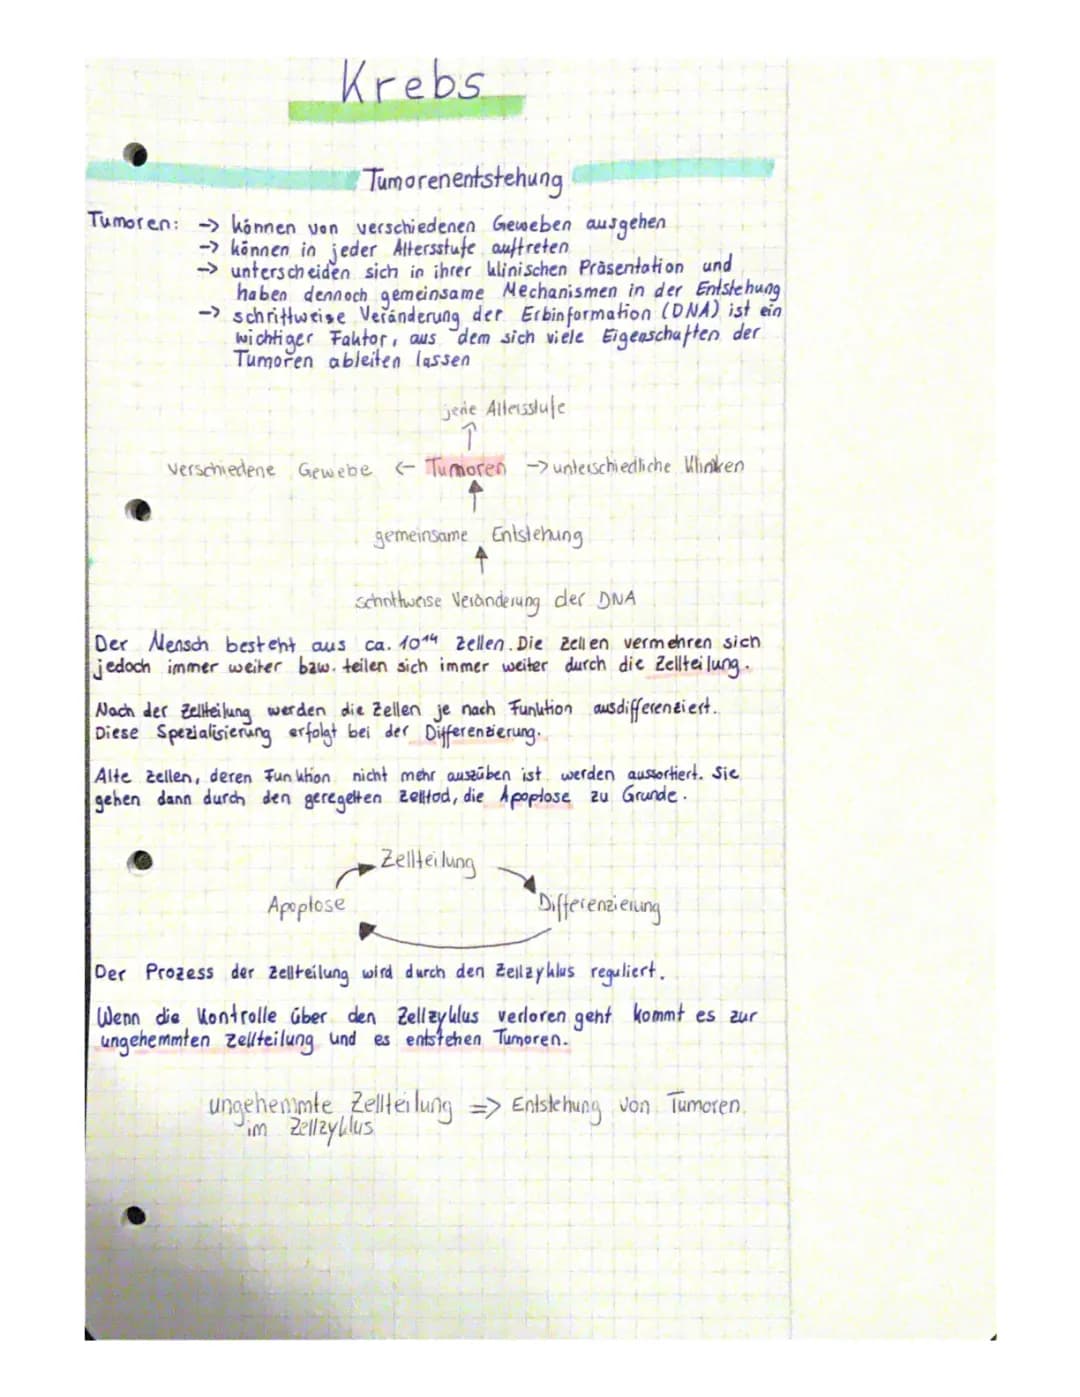 Krebs
Tumorenentstehung
Tumoren: -> können von verschiedenen Geweben ausgehen
-> können in jeder Altersstufe auftreten
-> unterscheiden sich in ihrer klinischen Präsentation und
haben dennoch gemeinsame Mechanismen in der Entstehung
-> schrittweise Veränderung der Erbinformation (DNA) ist ein
wichtiger Faktor, aus dem sich viele Eigenschaften der
Tumoren ableiten lassen
jede Altersstufe
↑
verschiedene Gewebe <- Tumoren -> unterschiedliche Kliniken
↑
gemeinsame Entstehung
↑
schrittweise Veränderung der DNA
Der Mensch besteht aus ca. 10¹⁴ Zellen. Die Zellen vermehren sich
jedoch immer weiter bzw. teilen sich immer weiter durch die Zellteilung.
Nach der Zellteilung werden die Zellen je nach Funktion ausdifferenziert.
Diese Spezialisierung erfolgt bei der Differenzierung.
Alte Zellen, deren Funktion nicht mehr auszüben ist werden aussortiert. Sie
gehen dann durch den geregelten Zelltod, die Apoptose zu Grunde.
Zellteilung
Apoptose Differenzierung
Der Prozess der Zellteilung wird durch den Zellzyklus reguliert.
Wenn die Kontrolle über den Zellzyklus verloren geht kommt es zur
ungehemmten Zellteilung und es entstehen Tumoren.
ungehemmte Zellteilung => Entstehung von Tumoren
im Zellzyklus